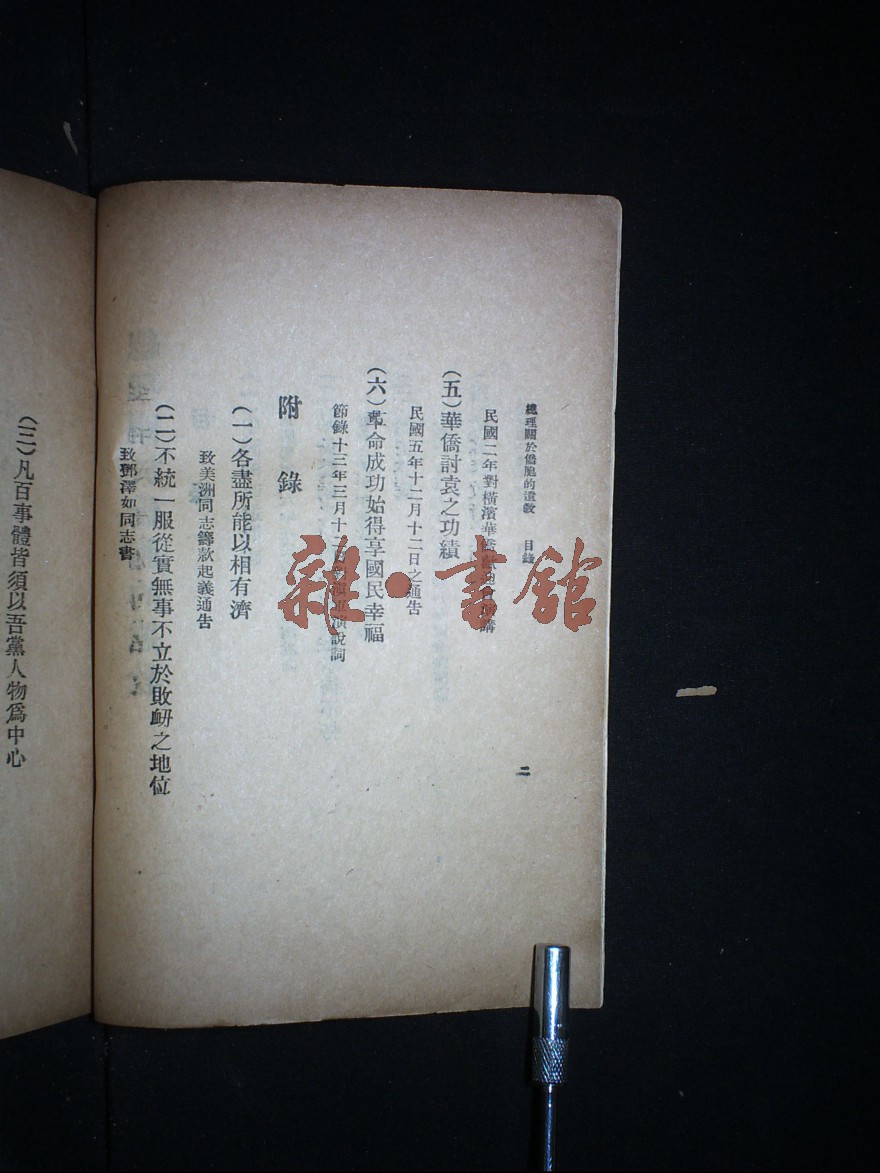 總理關於僑胞的遺敎 目錄
二
民國二年對橫濱華僑 講
(五)華僑討袁之功績
民國五年十二月十二日之通告
(六)革命成功始得享國民幸福
節錄十三年三月十 演說詞
附錄
(一)各盡所能以相有濟
致美洲同志籌款起義通告
(二)不統一服從實無事不立於敗衂之地位
致鄧澤如同志書
(三)凡百事體皆須以吾黨人物爲中心
雜·書館